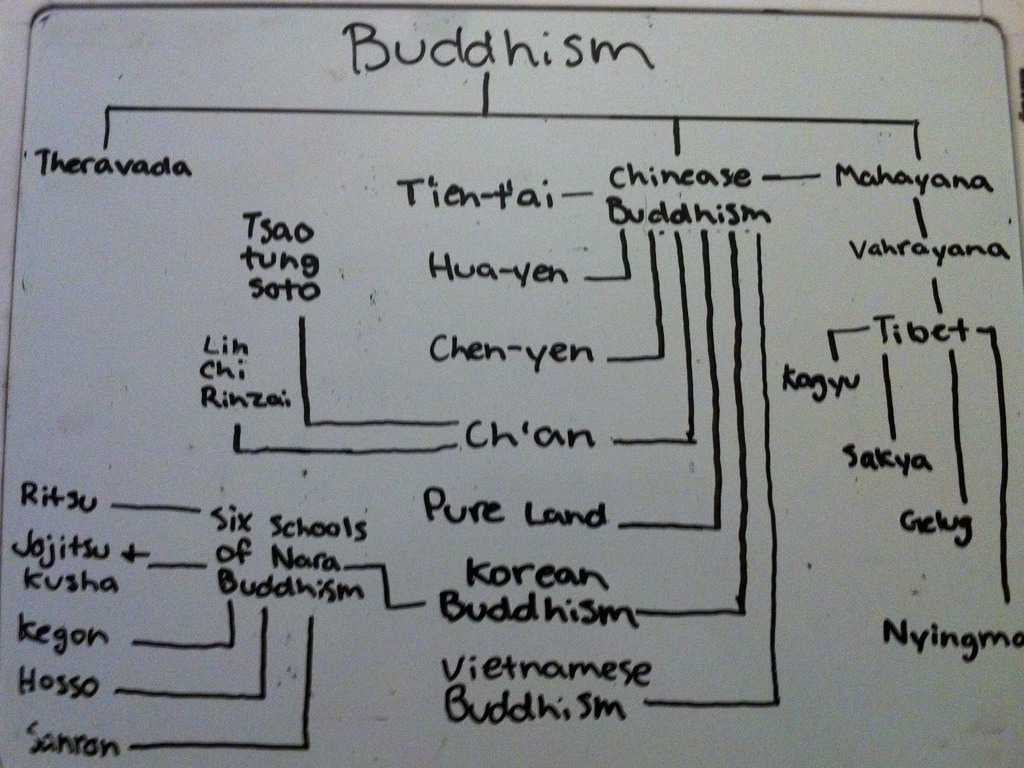 Buddhism
Theravada
Chinease
Buddhism
Mahayana
T'ien-t'ai
Hua-yen
Chen-yen
Ch'an
Tsao
tung
soto
Lin
Chi
Rinzai
Pure Land
Korean
Buddhism
Six Schools
of Nara
Buddhism
Ritsu
Jojitsu +
Kusha
Kegon
Hosso
Sanron
Vietnamese
Buddhism
Vahrayana
Tibet
Kagyu
Sakya
Gelug
Nyingma